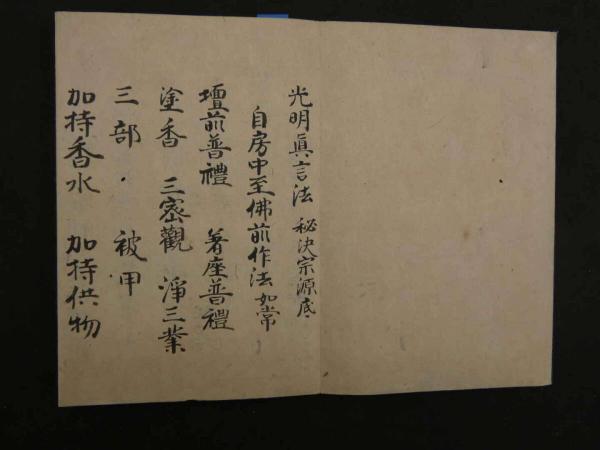 光明眞言法 秘決宗源底
自房中至佛前作法如常
壇前普禮 著座普禮
塗香 三密觀 淨三業
三部 被甲
加持香水 加持供物